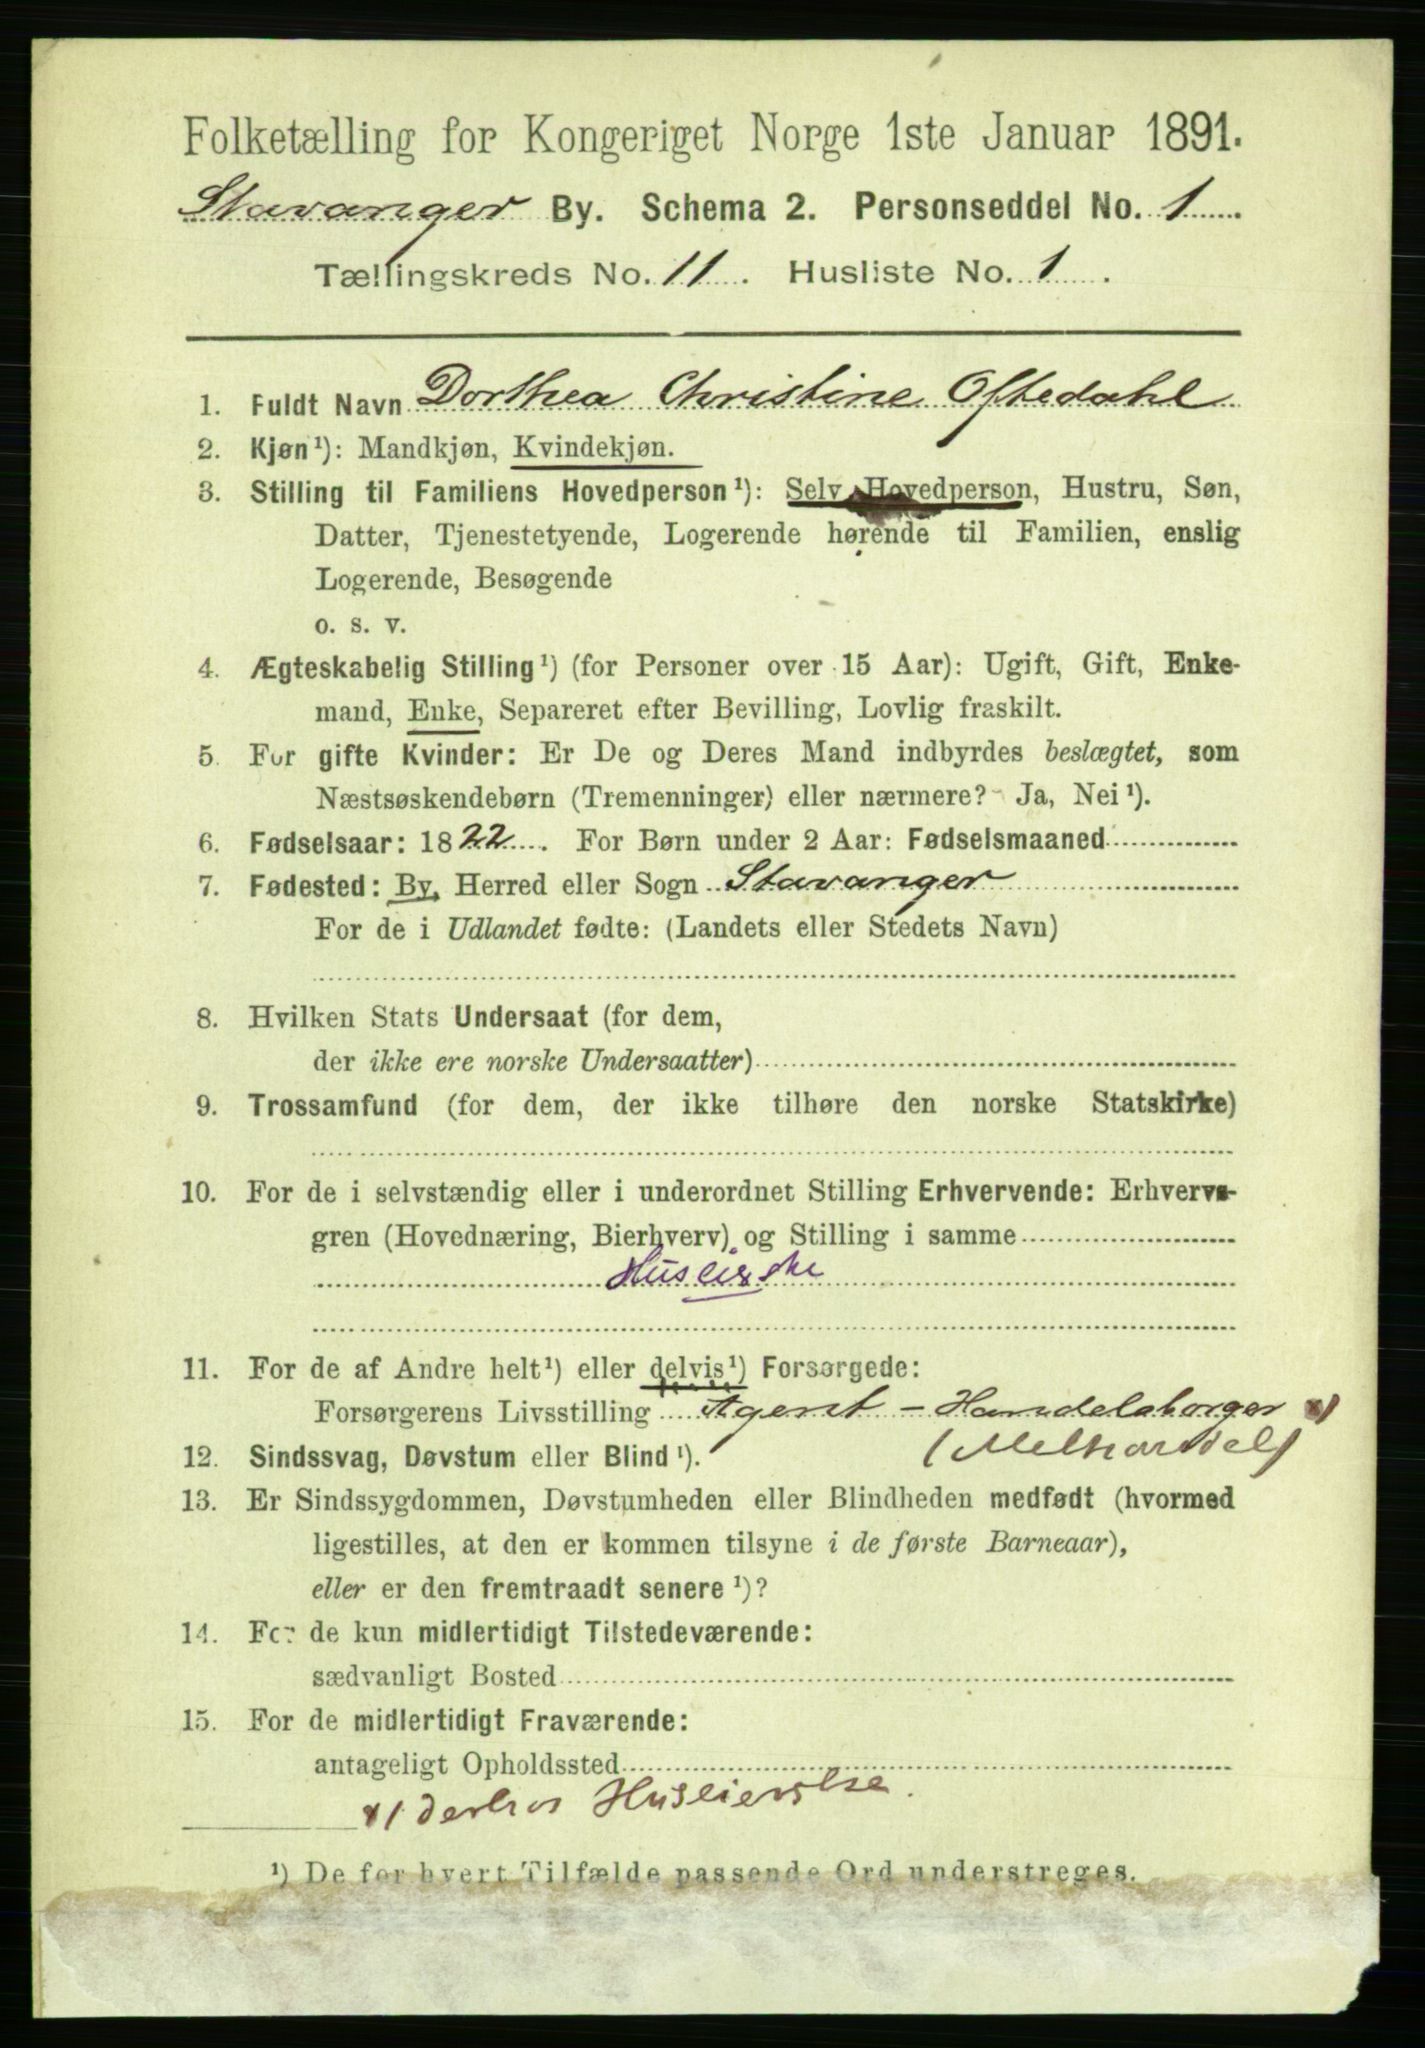 Folketælling for Kongeriget Norge 1ste Januar 1891.
Stavanger By. Schema 2. Personseddel No. 1
Tællingskreds No. 11. Husliste No. 1.
1. Fuldt Navn Dorthea Christine Oftedahl
2. Kjøn¹): Mandkjøn, Kvindekjøn.
3. Stilling til Familiens Hovedperson¹): Selv Hovedperson, Hustru, Søn,
Datter, Tjenestetyende, Logerende hørende til Familien, enslig
Logerende, Besøgende
o. s. v.
4. Ægteskabelig Stilling¹) (for Personer over 15 Aar): Ugift, Gift, Enke-
mand, Enke, Separeret efter Bevilling, Lovlig fraskilt.
5. For gifte Kvinder: Er De og Deres Mand indbyrdes beslægtet, som
Næstsøskendebørn (Tremenninger) eller nærmere? Ja, Nei¹).
6. Fødselsaar: 1822. For Børn under 2 Aar: Fødselsmaaned
7. Fødested: By, Herred eller Sogn Stavanger
For de i Udlandet fødte: (Landets eller Stedets Navn)
8. Hvilken Stats Undersaat (for dem,
der ikke ere norske Undersaatter)
9. Trossamfund (for dem, der ikke tilhøre den norske Statskirke)
10. For de i selvstændig eller i underordnet Stilling Erhvervende: Erhvervs-
gren (Hovednæring, Bierhverv) og Stilling i samme
11. For de af Andre helt¹) eller delvis¹) Forsørgede:
Forsørgerens Livsstilling Agent - Handelsborger x)
(Melhandel)
12. Sindssvag, Døvstum eller Blind¹).
13. Er Sindssygdommen, Døvstumheden eller Blindheden medfødt (hvormed
ligestilles, at den er kommen tilsyne i de første Barneaar),
eller er den fremtraadt senere¹)?
14. For de kun midlertidigt Tilstedeværende:
sædvanligt Bosted
15. For de midlertidigt Fraværende:
antageligt Opholdssted
x) derhos Huseierske.
¹) De for hvert Tilfælde passende Ord understreges.